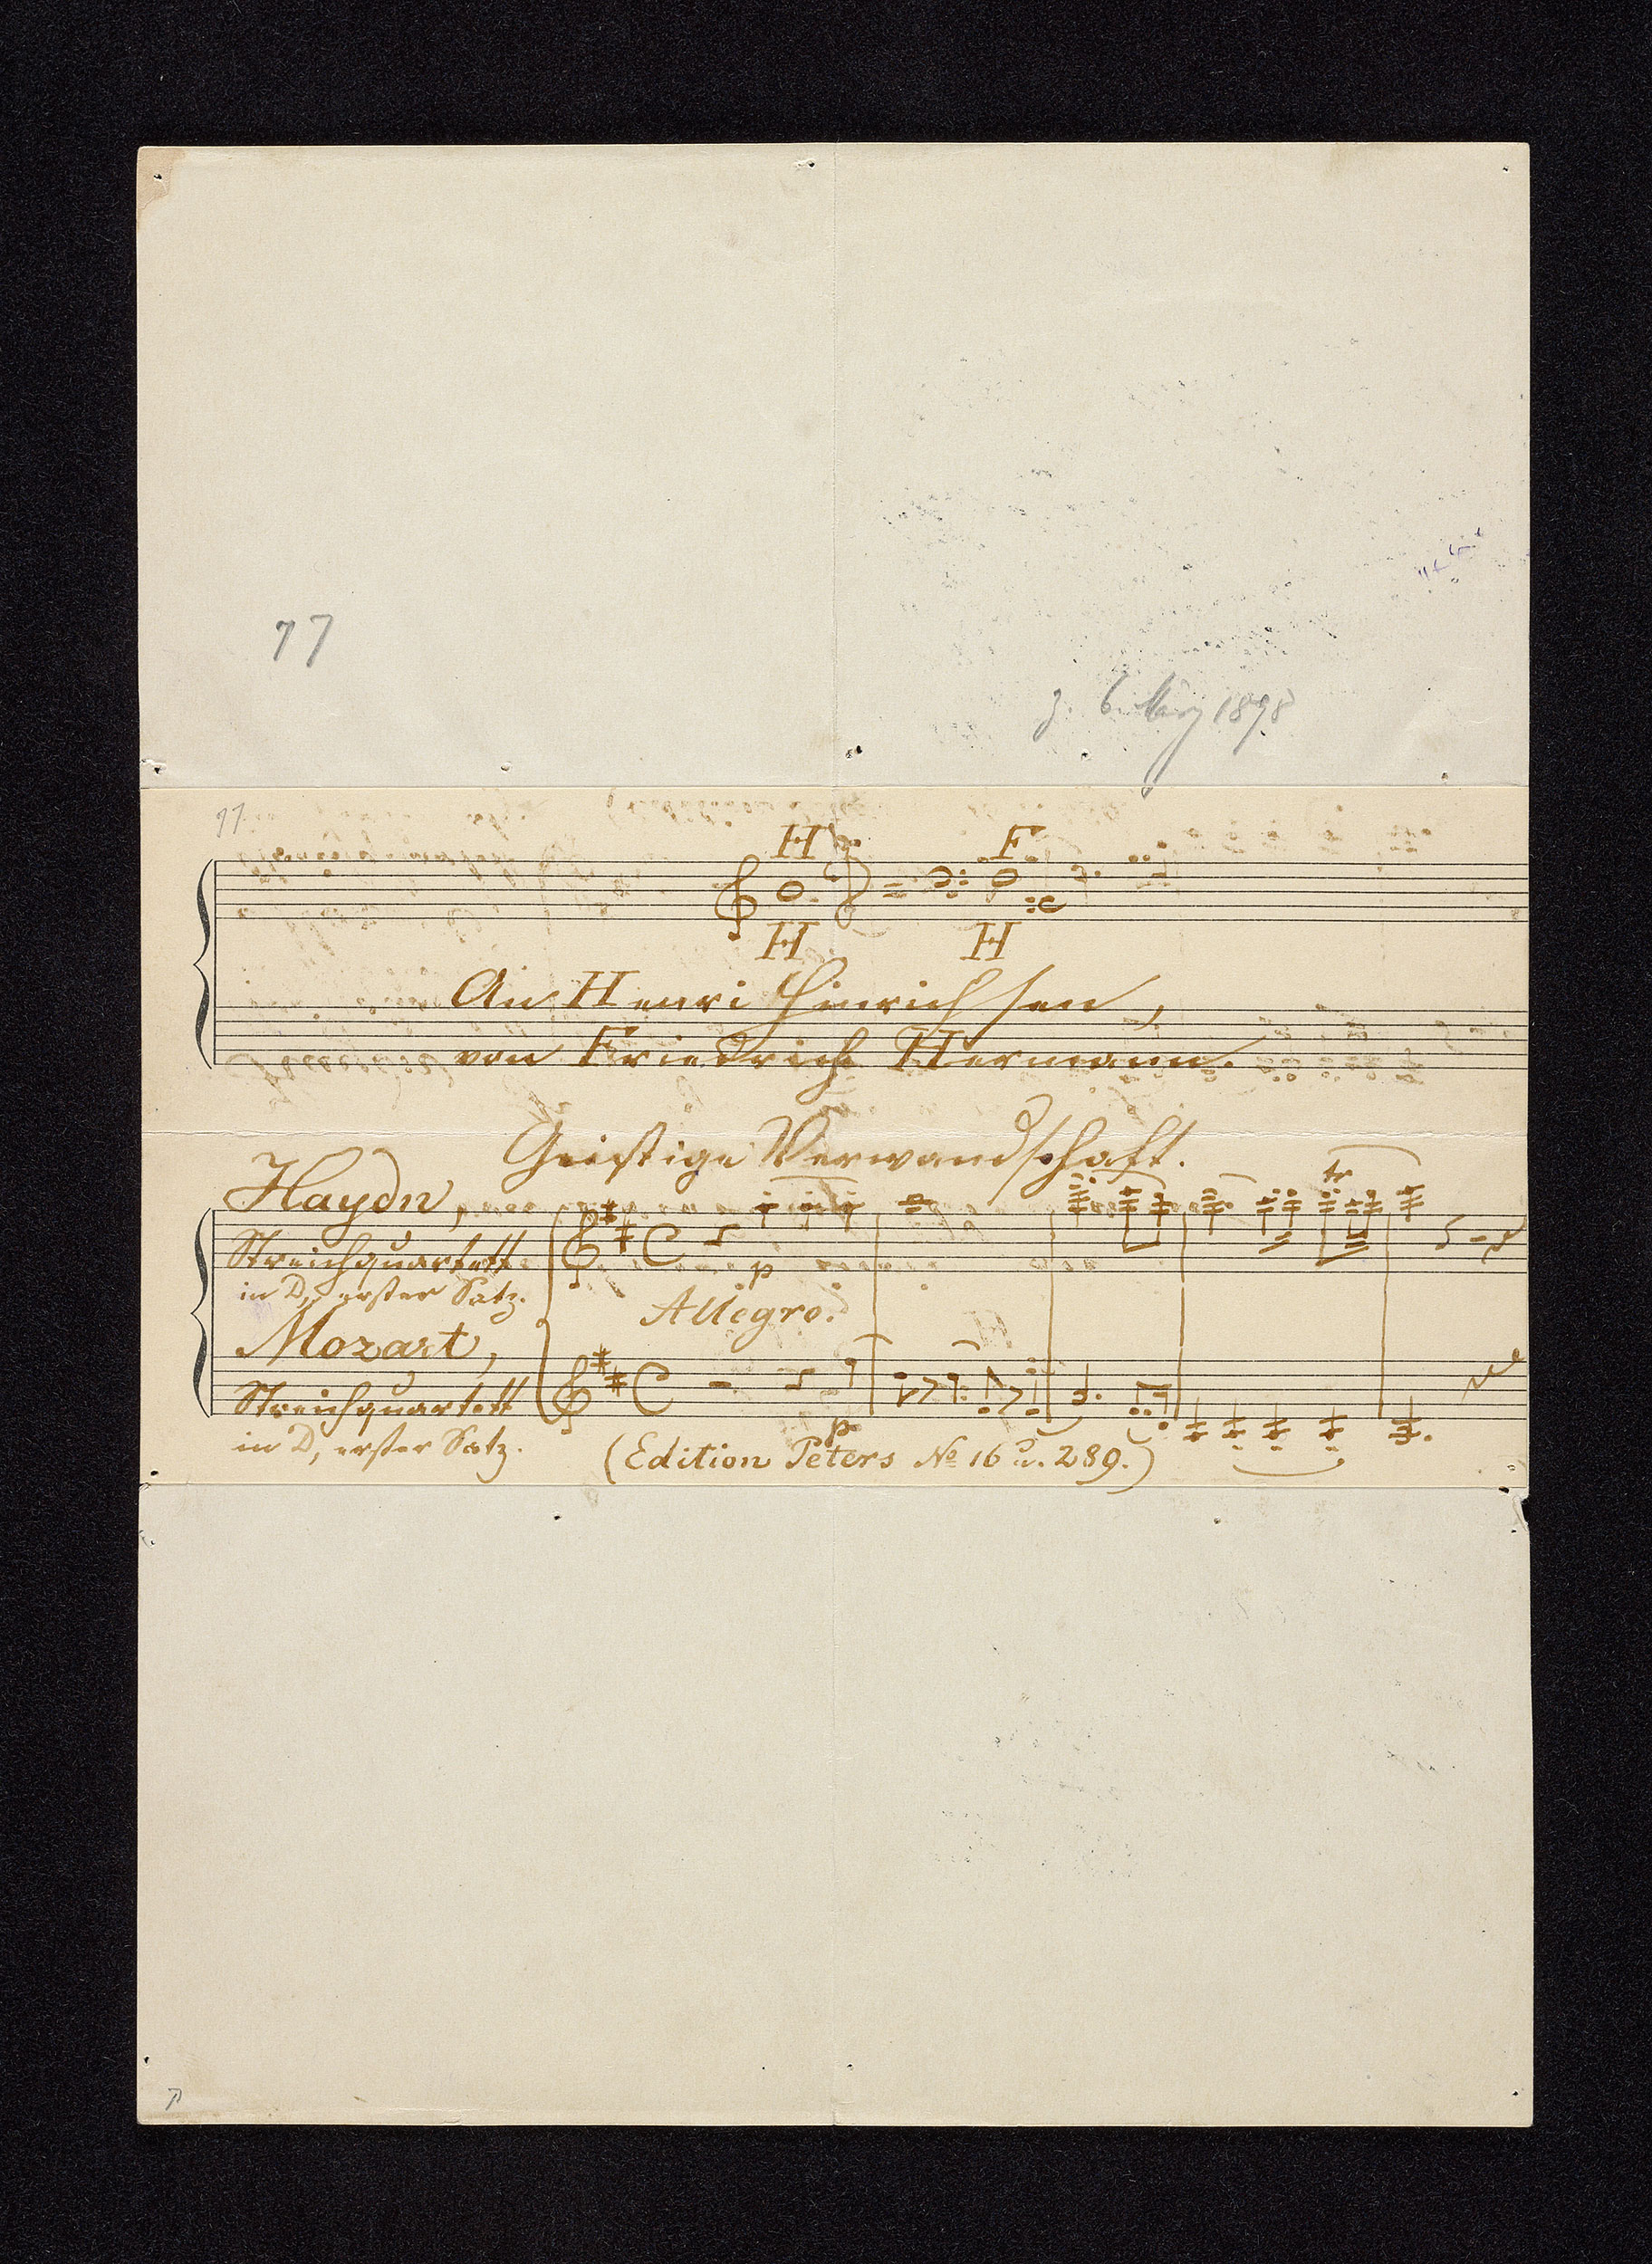 77
z. 6. März 1898
77
H F
H H
An Henri Hinrichsen,
von Friedrich Hermann.
Geistige Verwandschaft.
Haydn,
tr
Streichquartett
p
in D, erster Satz.
Allegro.
Mozart,
Streichquartett
p
in D, erster Satz.
(Edition Peters No 16 u. 289.)